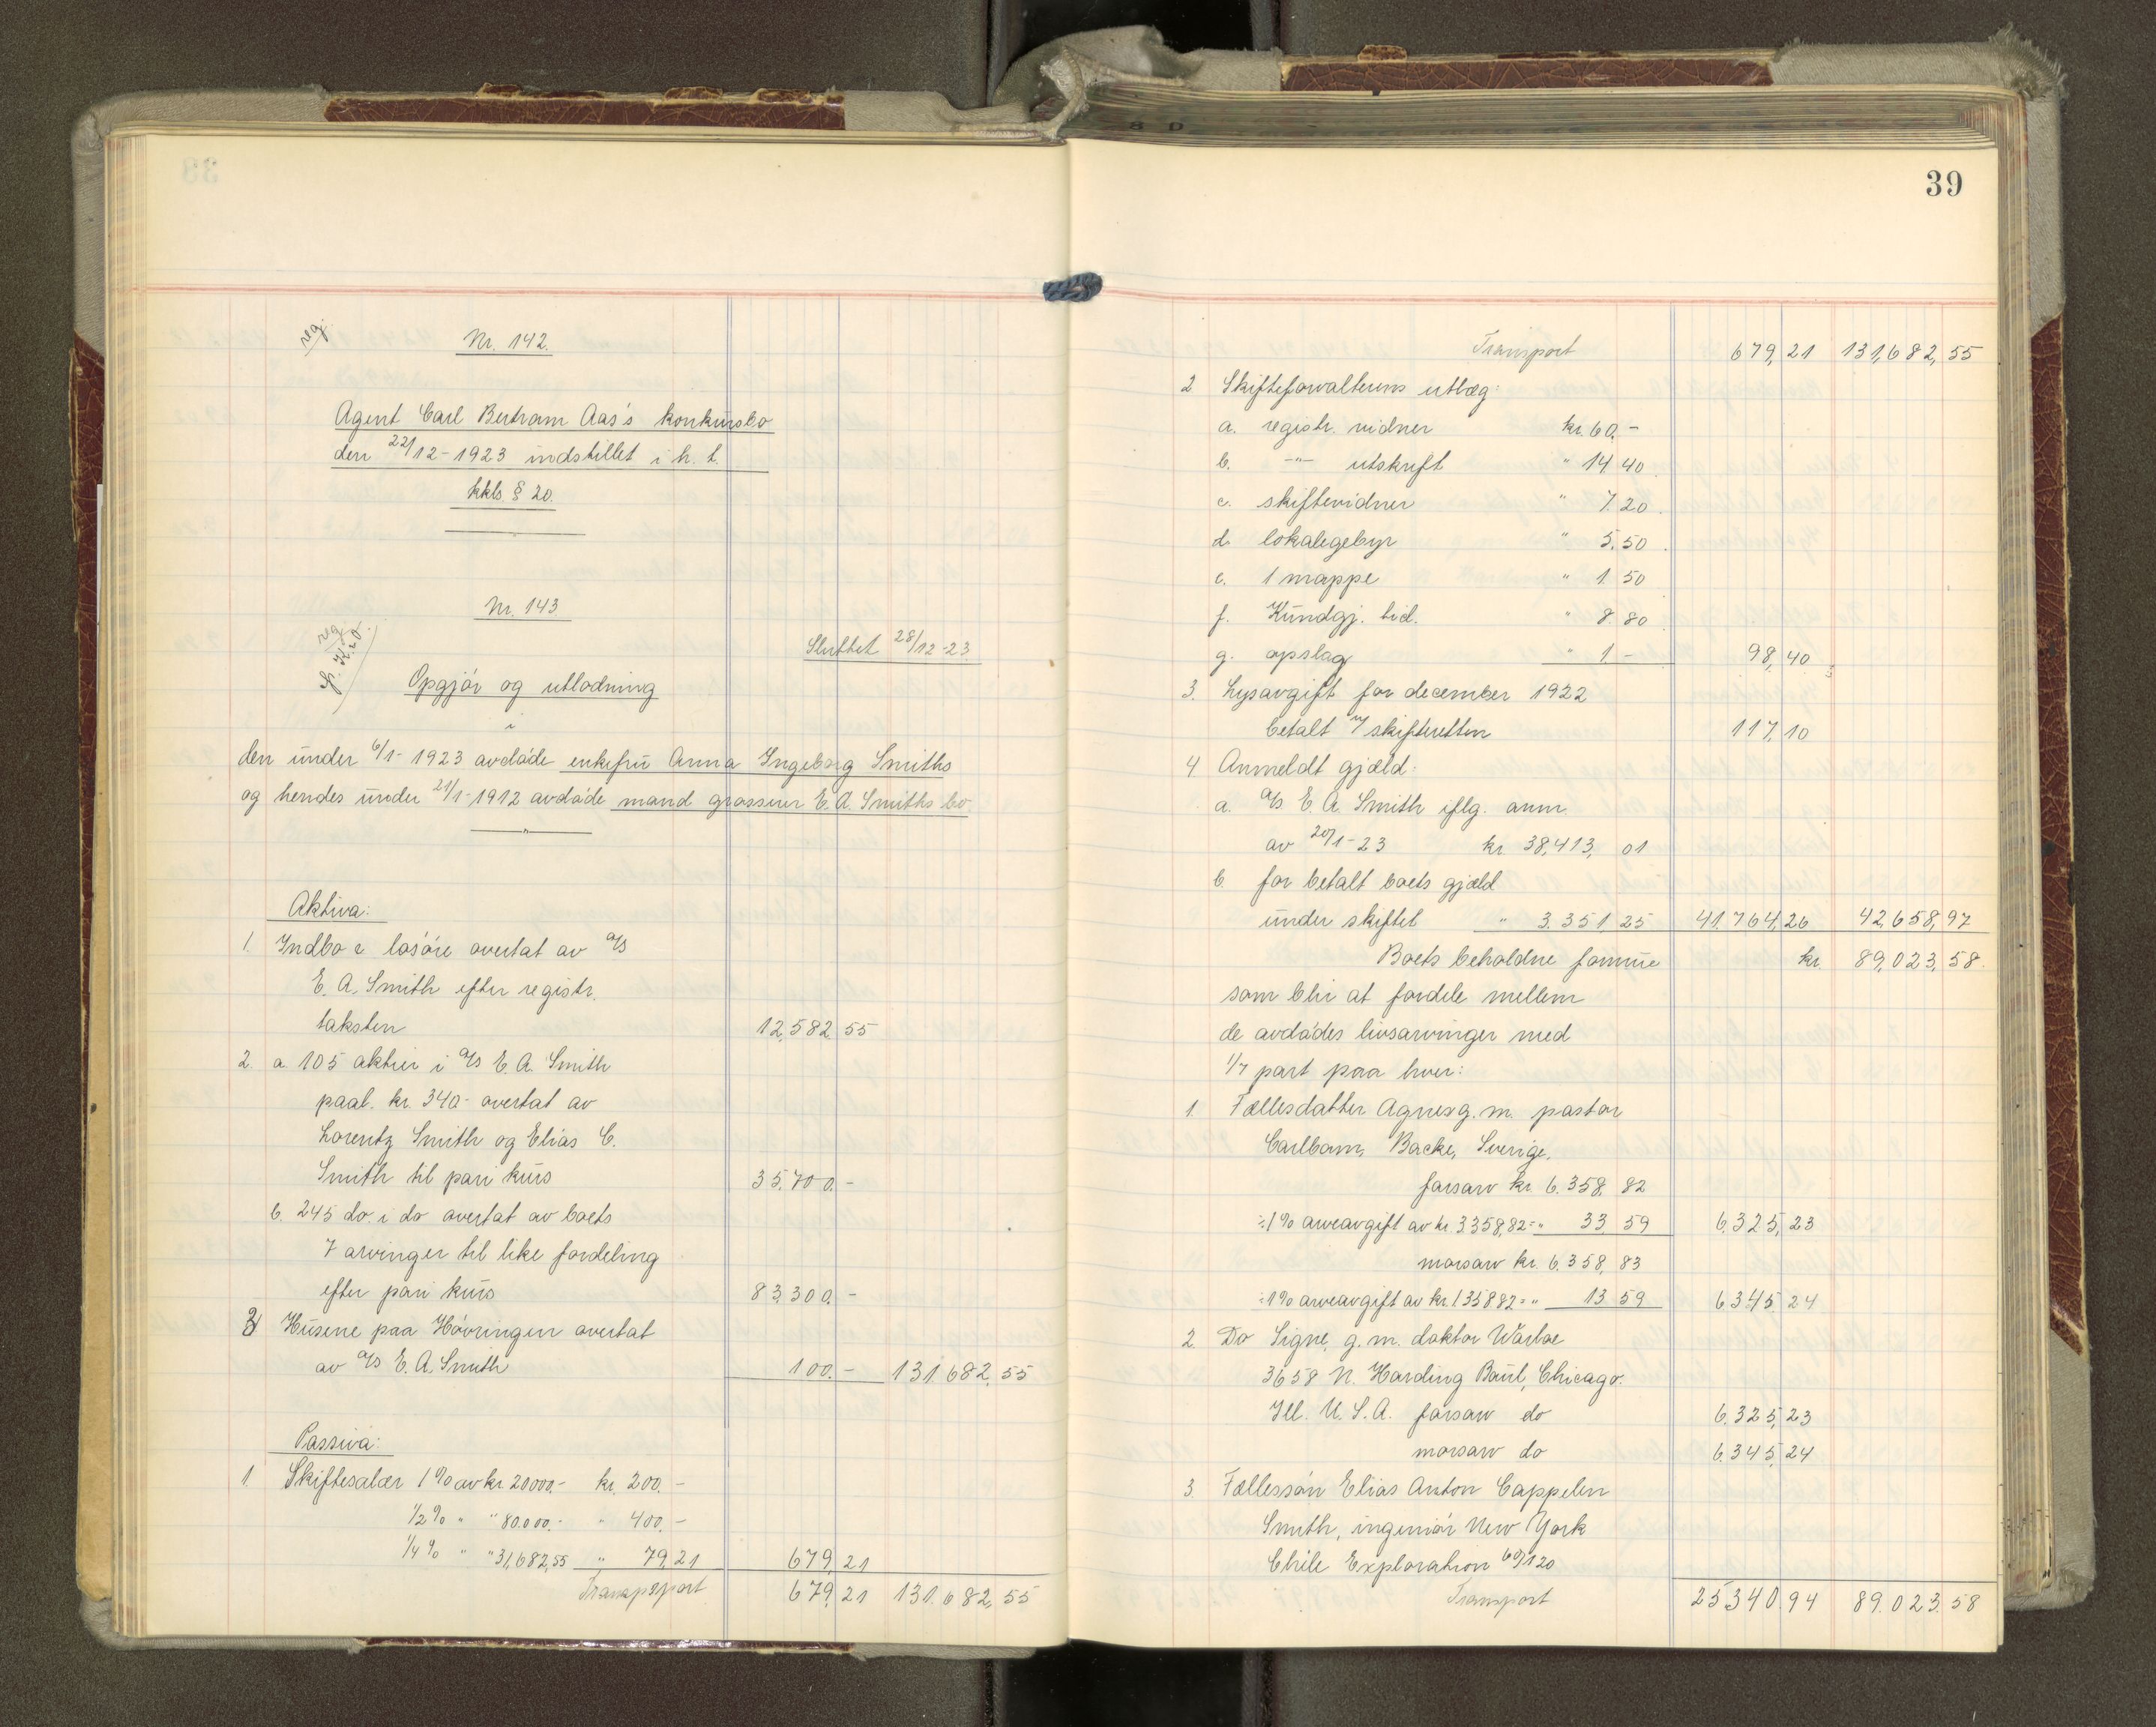 reg
Nr. 142.
Agent Carl Bertram Aas's konkursbo
den 22/12-1923 indstillet i h. t.
kkls. § 20.
Nr. 143
reg
Sluttet 28/12-23
Opgjör og utlodning
i
den under 6/1-1923 avdöde enkefru Anna Ingeborg Smiths
og hendes under 21/1-1912 avdöde mand grosserer E. A. Smiths bo
Aktiva:
1. Indbo & lösöre overtat av A/S
E. A. Smith efter registr.
taksten 12,582 55
2. a. 105 aktier i A/S E. A. Smith
paal. kr. 340- overtat av
Lorentz Smith og Elias C.
Smith til pari kurs 35.700.-
b. 245 do. i do overtat av boets
7 arvinger til like fordeling
efter pari kurs 83.300.-
3 Husene paa Hövringen overtat
av A/S E. A. Smith 100.- 131.682,55
Passiva:
1. Skiftesalær 1% av kr. 20000.- kr. 200.-
1/2% " " 80.000.- " 400.-
1/4% " " 31,682,55 " 79,21 679,21
Transport 679,21 131.682,55
39
Transport 679,21 131,682,55
2 Skifteforvalterens utlæg:
a. registr. vidner kr. 60.-
b. -"- utskrift " 14.40
c. skiftevidner " 7.20
d. lokalegebyr " 5.50
e. 1 mappe " 1.50
f. Kundgj. tid. " 8.80
g. opslag " 1- 98,40
3. Lysavgift for december 1922
betalt v/ skifteretten 117,10
4 Anmeldt gjæld:
a. A/S E. A. Smith iflg. anm.
av 20/1-23 kr. 38,413,01
b. for betalt boets gjæld
under skiftet " 3.351 25 41.764,26 42,658,97
Boets beholdne formue kr. 89,023,58.
som blir at fordele mellem
de avdödes livsarvinger med
1/7 part paa hver:
1. Fællesdatter Agnes g. m. pastor
Carlbom, Backe, Sverige.
farsarv kr. 6.358,82
÷1% arveavgift av kr. 3.358,82 = " 33 59 6,325,23
morsarv kr. 6.358,83
÷1% arveavgift av kr. 1.358 82 = " 13 59 6345,24
2. Do Signe, g. m. doktor Warloe
3658 N. Harding Baul, Chicago.
Ill. U. S. A. farsarv do 6.325,23
morsarv do 6.345,24
3. Fællessön Elias Anton Cappelen
Smith, ingeniör New York
Chile Exploration 60/120
Transport 25340.94 89.023.58